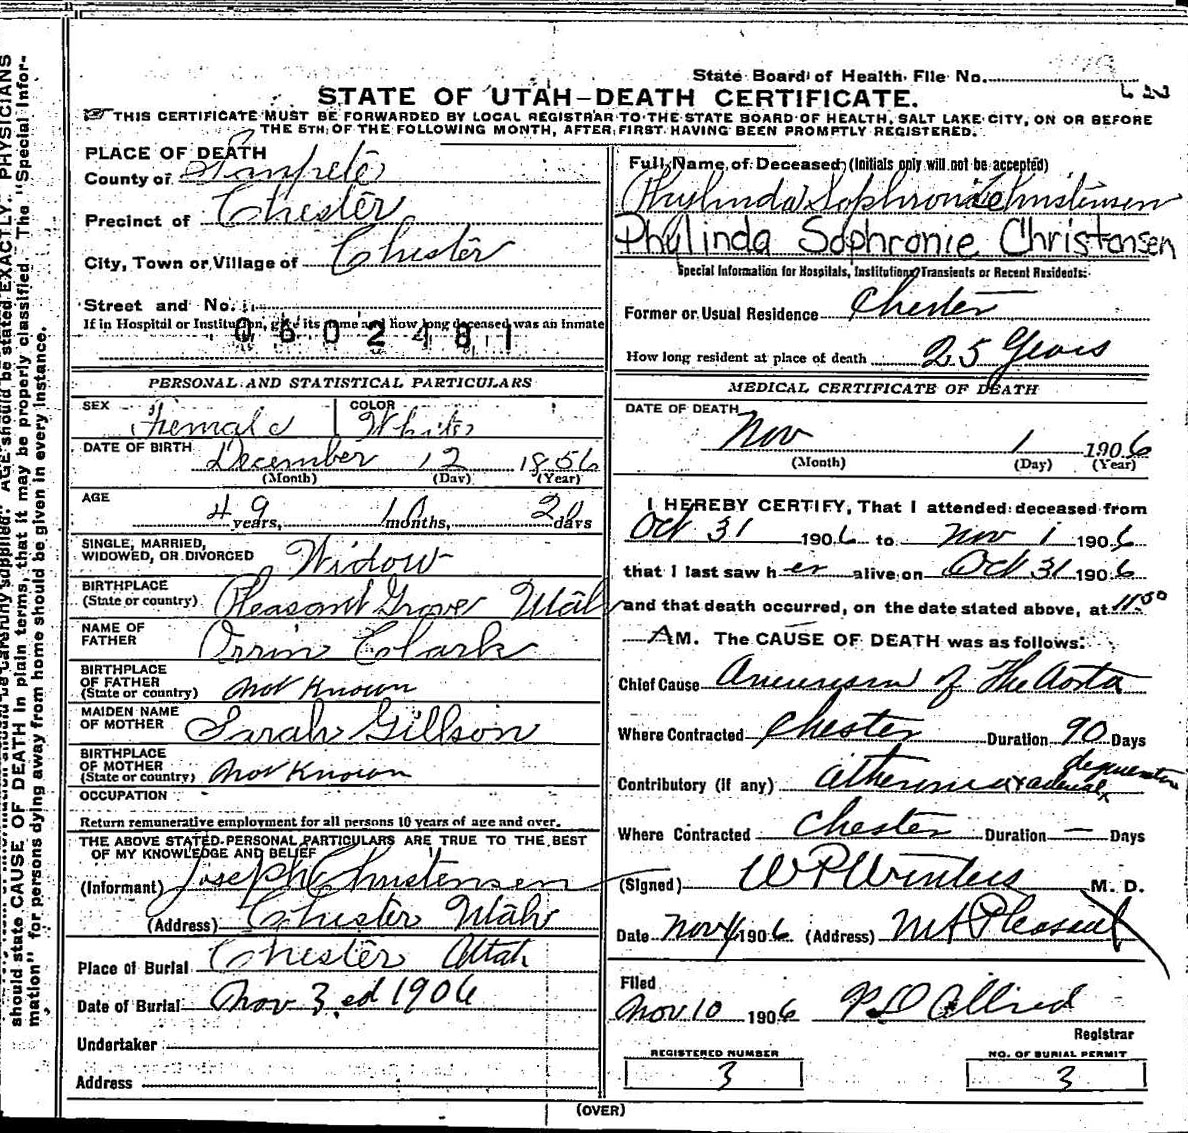 State Board of Health File No.
STATE OF UTAH—DEATH CERTIFICATE.
☞ THIS CERTIFICATE MUST BE FORWARDED BY LOCAL REGISTRAR TO THE STATE BOARD OF HEALTH, SALT LAKE CITY, ON OR BEFORE
THE 5TH OF THE FOLLOWING MONTH, AFTER FIRST HAVING BEEN PROMPTLY REGISTERED.
PLACE OF DEATH
County of Sanpete
Precinct of Chester
City, Town or Village of Chester
Street and No.
If in Hospital or Institution, give its name and how long deceased was an inmate
0602481
PERSONAL AND STATISTICAL PARTICULARS
SEX Female COLOR White
DATE OF BIRTH December 12 1856
(Month) (Day) (Year)
AGE 49 years, 10 months, 20 days
SINGLE, MARRIED,
WIDOWED, OR DIVORCED Widow
BIRTHPLACE
(State or country) Pleasant Grove Utah
NAME OF
FATHER Orrin Clark
BIRTHPLACE
OF FATHER
(State or country) Not Known
MAIDEN NAME
OF MOTHER Sarah Gillson
BIRTHPLACE
OF MOTHER
(State or country) Not Known
OCCUPATION
Return remunerative employment for all persons 10 years of age and over.
THE ABOVE STATED PERSONAL PARTICULARS ARE TRUE TO THE BEST
OF MY KNOWLEDGE AND BELIEF
(Informant) Joseph Christensen
(Address) Chester Utah
Place of Burial Chester Utah
Date of Burial Nov 3.ed 1906
Undertaker
Address
Full Name of Deceased (Initials only will not be accepted)
Phylinda Sophronie Christensen
Phylinda Sophronie Christensen
Special Information for Hospitals, Institutions, Transients or Recent Residents:
Former or Usual Residence Chester
How long resident at place of death 25 Years
MEDICAL CERTIFICATE OF DEATH
DATE OF DEATH
Nov 1 1906
(Month) (Day) (Year)
I HEREBY CERTIFY, That I attended deceased from
Oct 31 1906 to Nov 1 1906
that I last saw her alive on Oct 31 1906
and that death occurred, on the date stated above, at 11.50
AM. The CAUSE OF DEATH was as follows:
Chief Cause Aneurism of The Aorta
Where Contracted Chester Duration 90 Days
Contributory (if any) Atheroma arterial degeneration
Where Contracted Chester Duration — Days
(Signed) W P Winters M. D.
Date Nov 4 1906 (Address) Mt Pleasant
Filed
Nov 10 1906 P D Allred
Registrar
REGISTERED NUMBER
3
NO. OF BURIAL PERMIT
3
(OVER)
AGE should be stated EXACTLY. PHYSICIANS
should state CAUSE OF DEATH in plain terms, that it may be properly classified. The "Special Infor-
mation" for persons dying away from home should be given in every instance.